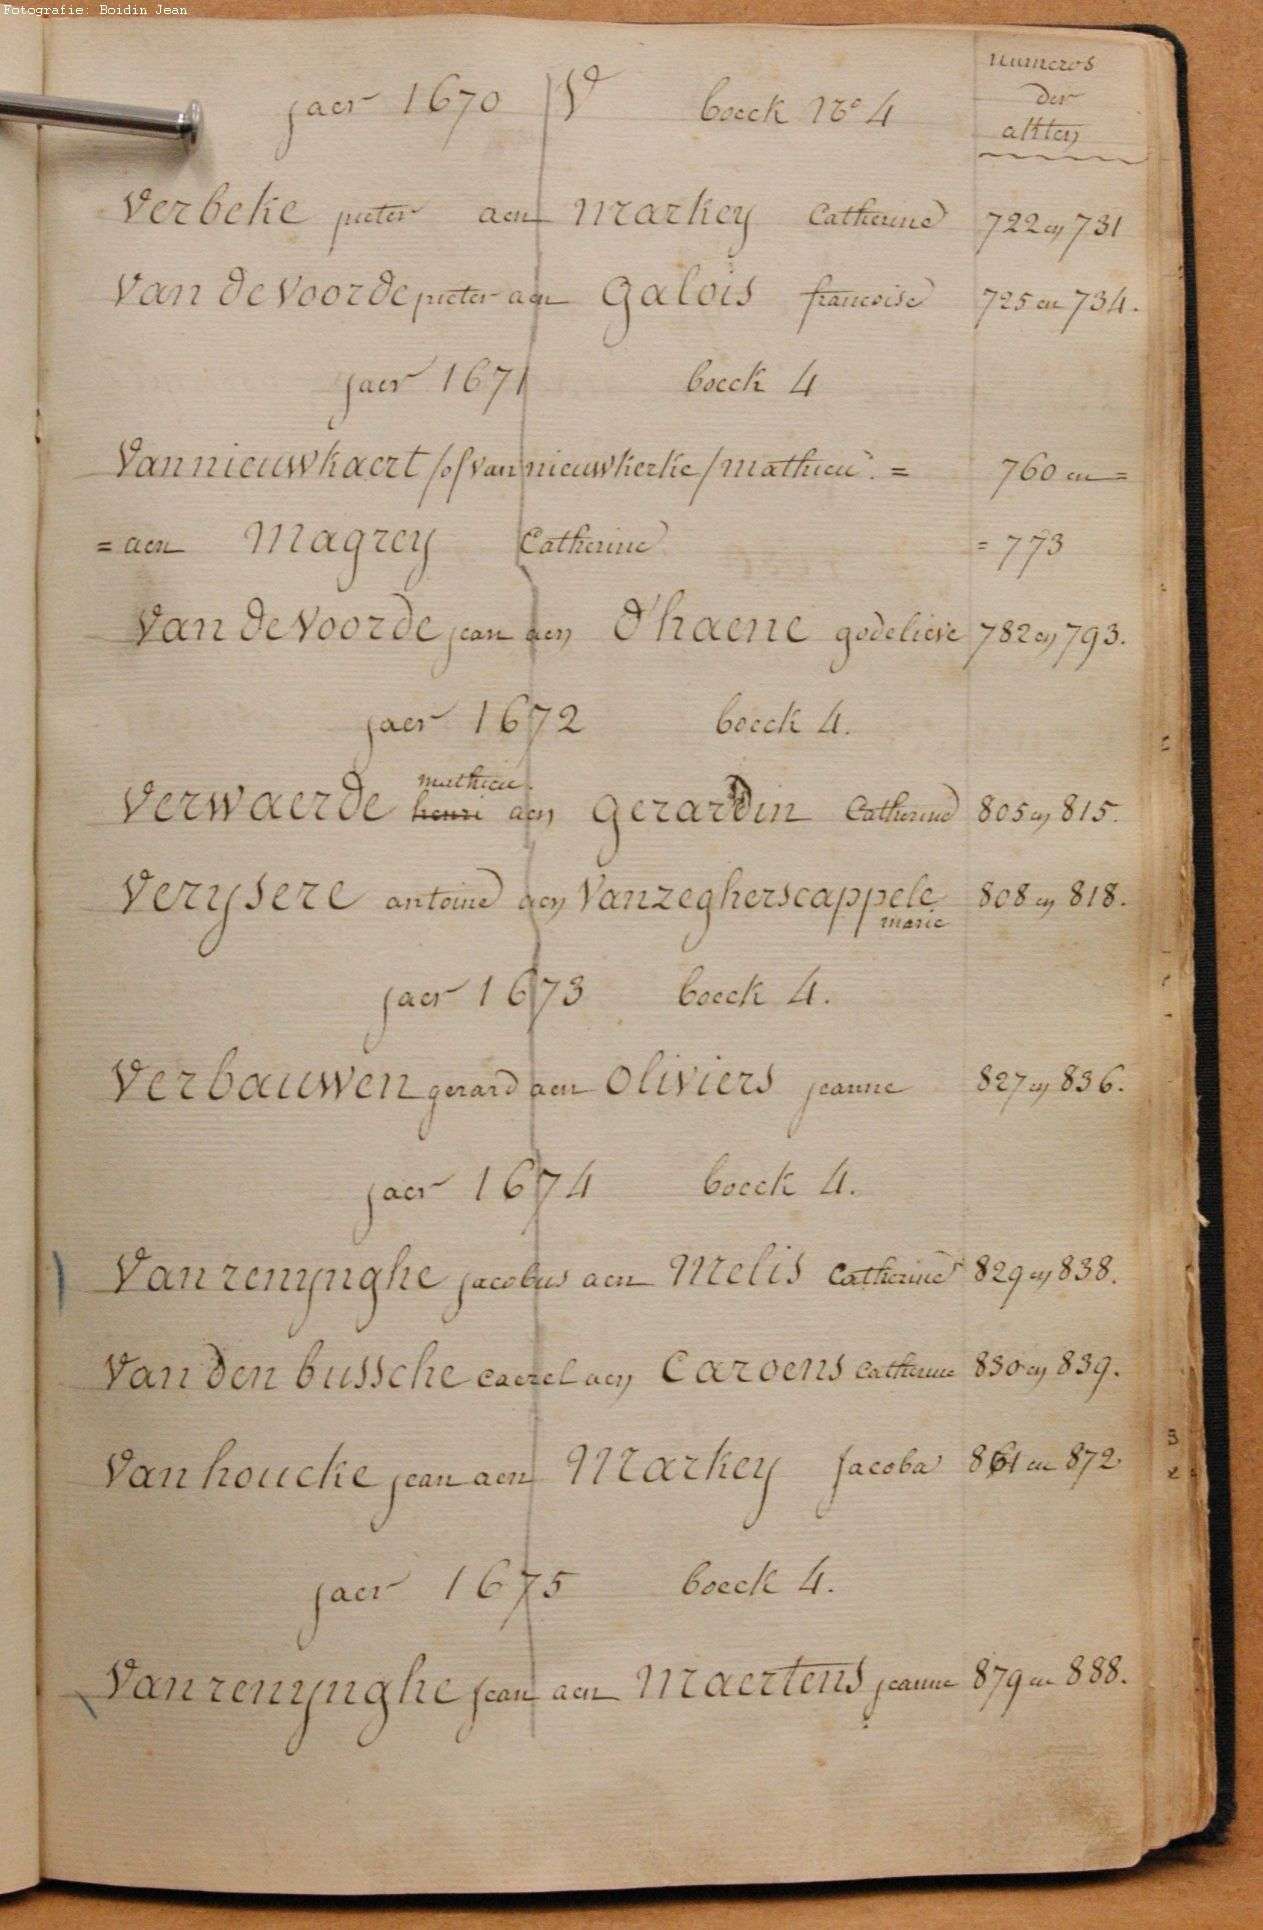 Fotografie: Boidin Jean
numeros
jaer 1670 V boeck No 4
der
akten
Verbeke pieter aen Markey Catherine 722 en 731
Van de Voorde pieter aen Galois francoise 725 en 734.
jaer 1671 boeck 4
Van nieuwkaert /of van nieuwkerke/ mathieu. = 760 en =
= aen Magrey Catherine = 773
Van de Voorde jean aen D'haene godelieve 782 en 793.
jaer 1672 boeck 4.
mathieu.
Verwaerde henri aen Gerardin Catherine 805 en 815.
Verysere antoine aen Vanzegherscappele 808 en 818.
marie
jaer 1673 boeck 4.
Verbauwen gerard aen Oliviers jeanne 827 en 836.
jaer 1674 boeck 4.
Van renynghe jacobus aen Melis Catherine 829 en 838.
Van den bussche caerel aen Caroens Catherine 830 en 839.
Van houcke jean aen Markey Jacoba 861 en 872
jaer 1675 boeck 4.
Van renynghe jean aen Maertens jeanne 879 en 888.